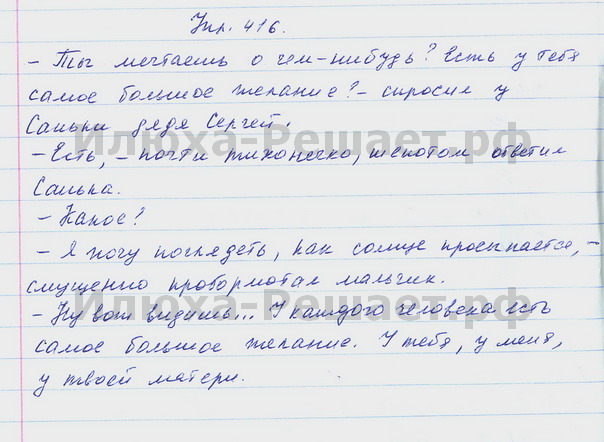 Упр. 416.
– Ты мечтаешь о чем-нибудь? Есть у тебя
самое большое желание? – спросил у
Саньки дядя Сергей.
Илюха-Решает.рф
– Есть, – почти тихонечко, шепотом ответил
Санька.
– Какое?
– Я хочу поглядеть, как солнце просыпается, –
смущенно пробормотал мальчик.
Илюха-Решает.рф
– Ну вот видишь... У каждого человека есть
самое большое желание. У тебя, у меня,
у твоей матери.